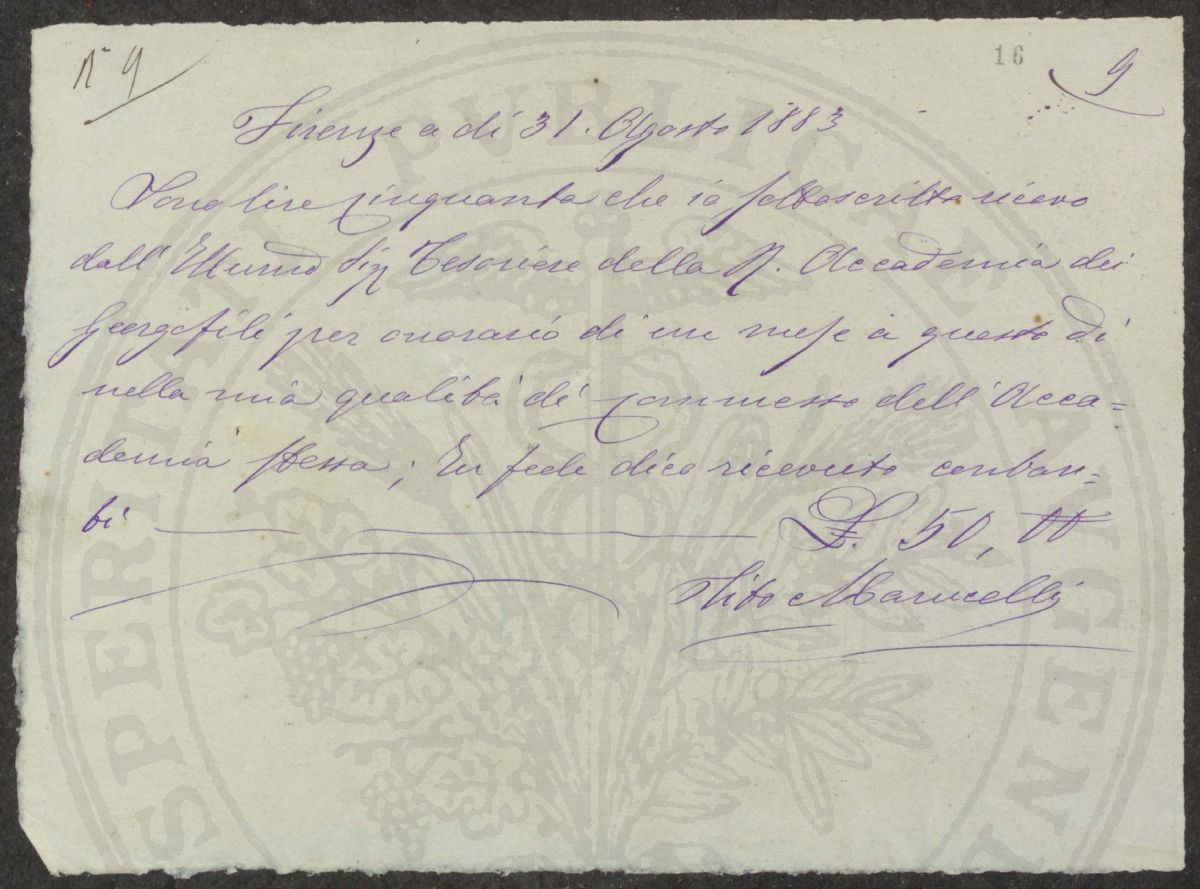 N° 9
16
9
Firenze a dì 31. Agosto 1883
Sono lire cinquanta che io sottoscritto ricevo
dall' Illmo Sig Tesoriere della R. Accademia dei
Georgofili per onorario di un mese a questo dì
nella mia qualità di commesso dell' Acca=
demia stessa; In fede dico ricevuto contan=
ti L. 50, 00
Tito Marucelli
PVBLICAE
PROSPERITATI AVGENDAE